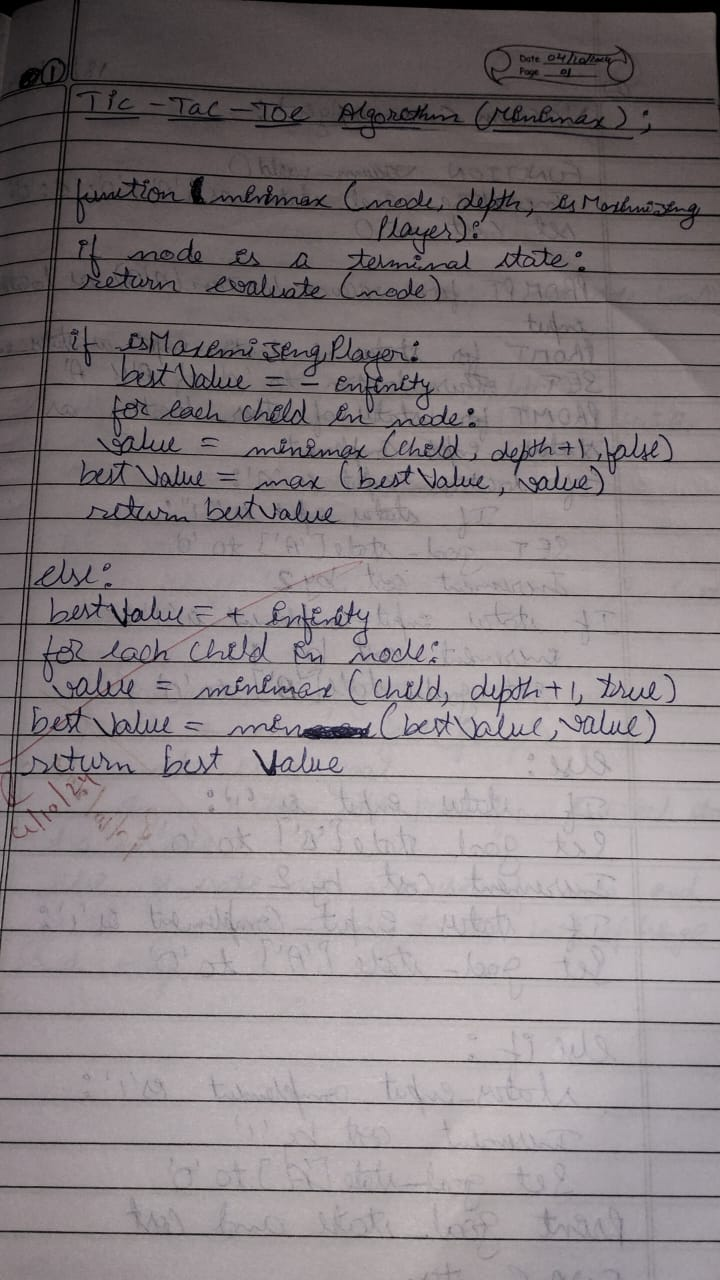 1
Date 04/10/2024
Page 01
Tic - Tac - Toe Algorithm (Minimax);
function minimax (node, depth, isMaximizing
Player):
if node is a terminal state:
return evaluate (node)
if isMaximizingPlayer:
best Value = - infinity
for each child in node:
value = minimax (child, depth+1, false)
best Value = max (best Value, value)
return bestvalue
else:
best Value = + infinity
for each child in node:
value = minimax (child, depth+1, true)
best Value = min (best Value, value)
return best Value